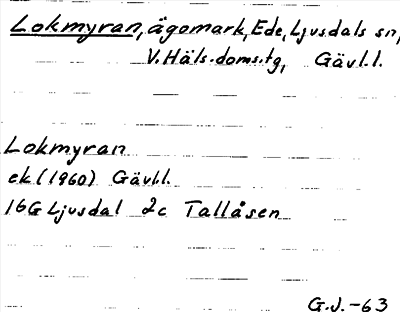 Lokmyran, ägomark, Ede, Ljusdals sn,
V. Häls. doms.tg, Gävl.l.
Lokmyran
ek (1960) Gävl.l.
16G Ljusdal 2c Tallåsen
G.J. -63